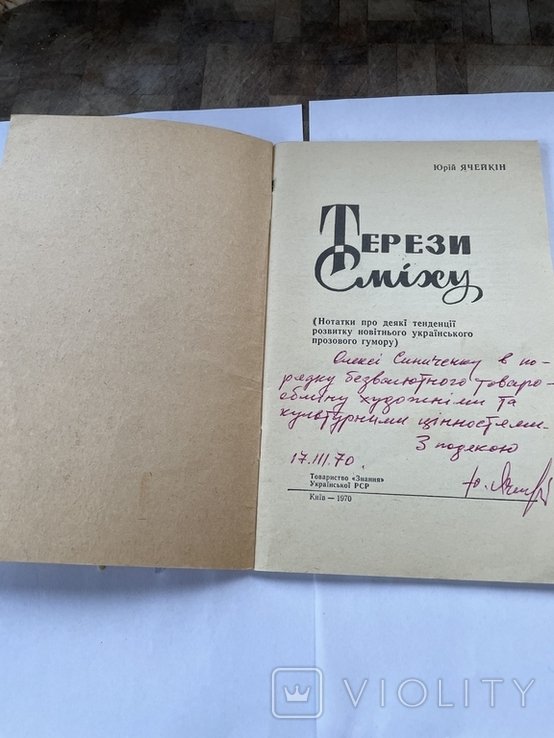 Юрій ЯЧЕЙКІН
ТЕРЕЗИ
Сміху
(Нотатки про деякі тенденції
розвитку новітнього українського
прозового гумору)
Олексі Синиченку в по-
рядку безвалютного товаро-
обміну художніми та
культурними цінностями.
З подякою
17.III.70.
Ю. Ячейкін
Товариство «Знання»
Української РСР
Київ — 1970
VIOLITY